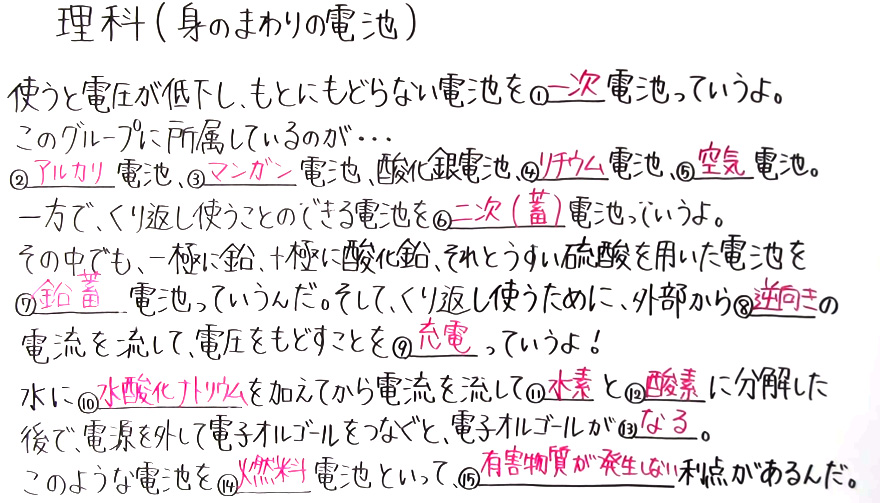 理科(身のまわりの電池)
使うと電圧が低下し、もとにもどらない電池を①一次電池っていうよ。
このグループに所属しているのが・・・
②アルカリ電池、③マンガン電池、酸化銀電池、④リチウム電池、⑤空気電池。
一方で、くり返し使うことのできる電池を⑥二次(蓄)電池っていうよ。
その中でも、一極に鉛、十極に酸化鉛、それとうすい硫酸を用いた電池を
⑦鉛蓄電池っていうんだ。そして、くり返し使うために、外部から⑧逆向きの
電流を流して、電圧をもどすことを⑨充電っていうよ!
水に⑩水酸化ナトリウムを加えてから電流を流して⑪水素と⑫酸素に分解した
後で、電源を外して電子オルゴールをつなぐと、電子オルゴールが⑬なる。
このような電池を⑭燃料電池といって、⑮有害物質が発生しない利点があるんだ。